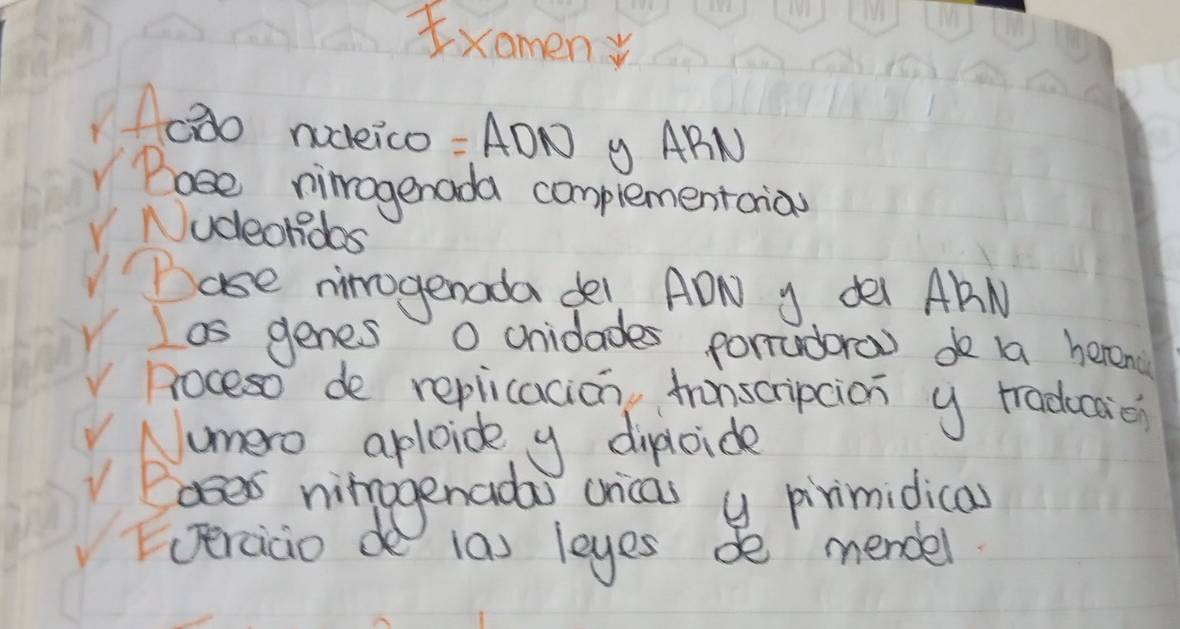 Examen
Acido nucleico = ADN y ARN
Base nitrogenada complementarias
Nucleotidos
Base nitrogenada del ADN y del ARN
Los genes o unidades portadoras de la herencia
Proceso de replicacion, transcripcion y traduccion
Numero aploide y diploide
Bases nitrogenadas uricas y pirimidicas
Ejercicio de las leyes de mendel.